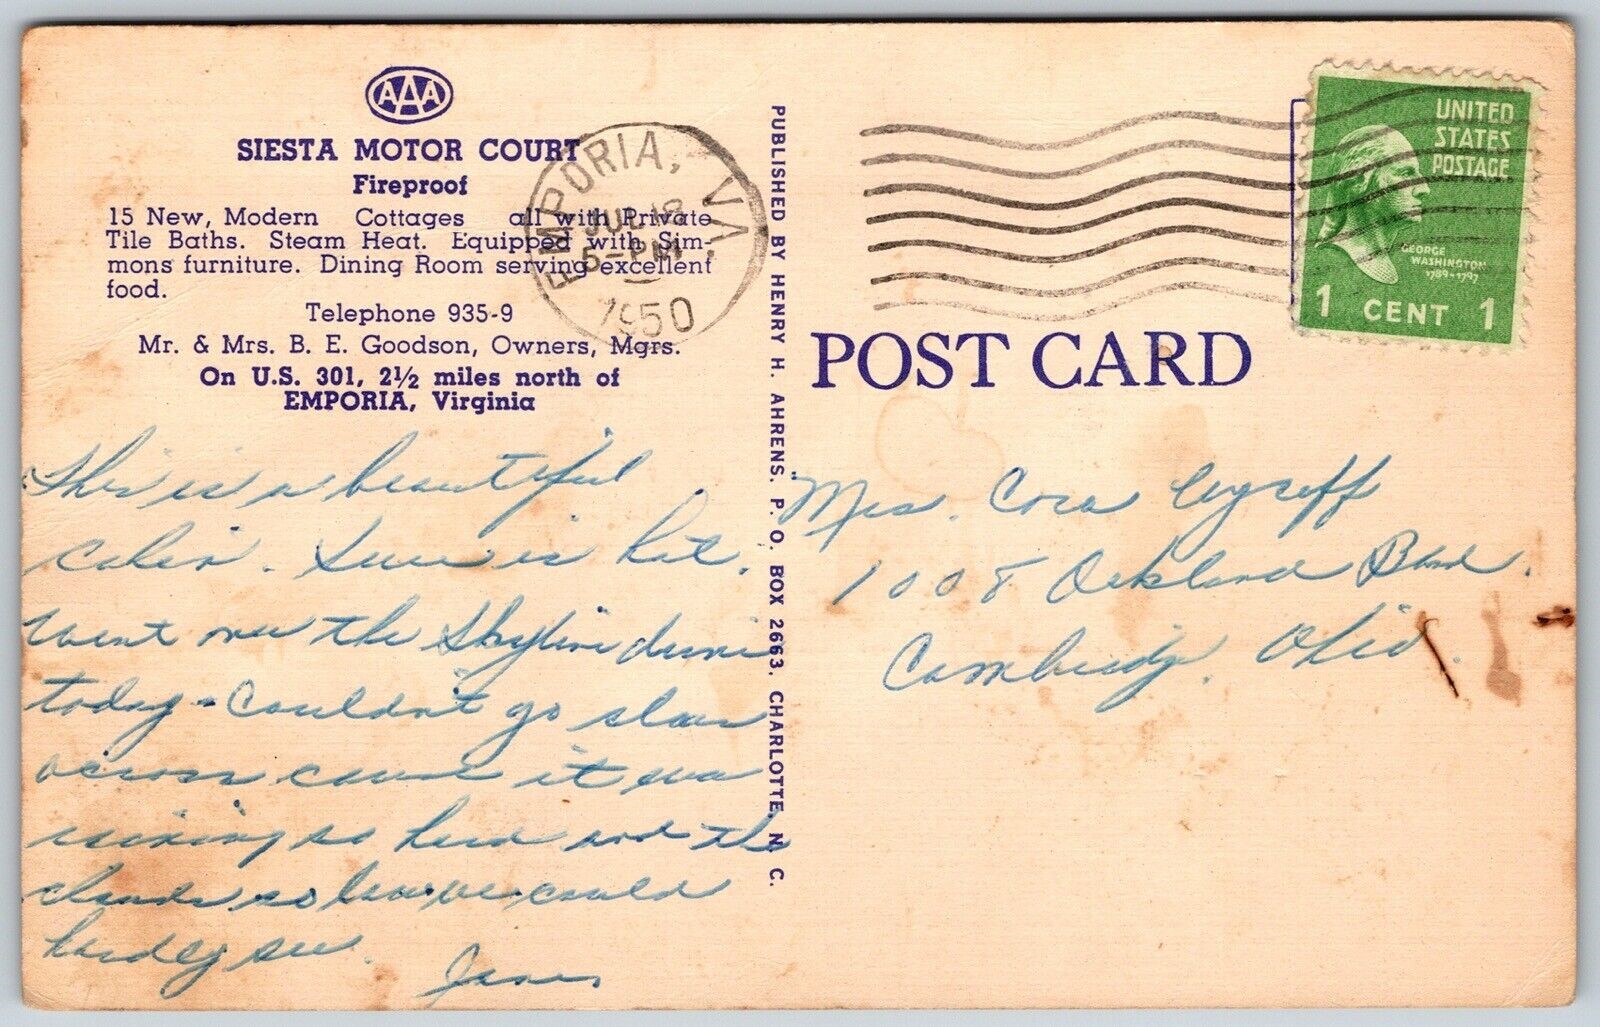 AAA
SIESTA MOTOR COURT
Fireproof
15 New, Modern Cottages all with Private
Tile Baths. Steam Heat. Equipped with Sim-
mons furniture. Dining Room serving excellent
food.
Telephone 935-9
Mr. & Mrs. B. E. Goodson, Owners, Mgrs.
On U.S. 301, 2½ miles north of
EMPORIA, Virginia
EMPORIA, VA.
JUL 18
5-PM
1950
This is a beautiful
cabin. Sure is hot.
Went over the Skyline drive
today - Couldn't go slow
across cause it was
raining so hard and the
clouds so low we could
hardly see.
PUBLISHED BY HENRY H. AHRENS. P. O. BOX 2663. CHARLOTTE, N. C.
UNITED
STATES
POSTAGE
GEORGE
WASHINGTON
1789-1797
1 CENT 1
POST CARD
Mrs. Cora
1008 Oakland Blvd.
Cambridge, Ohio.